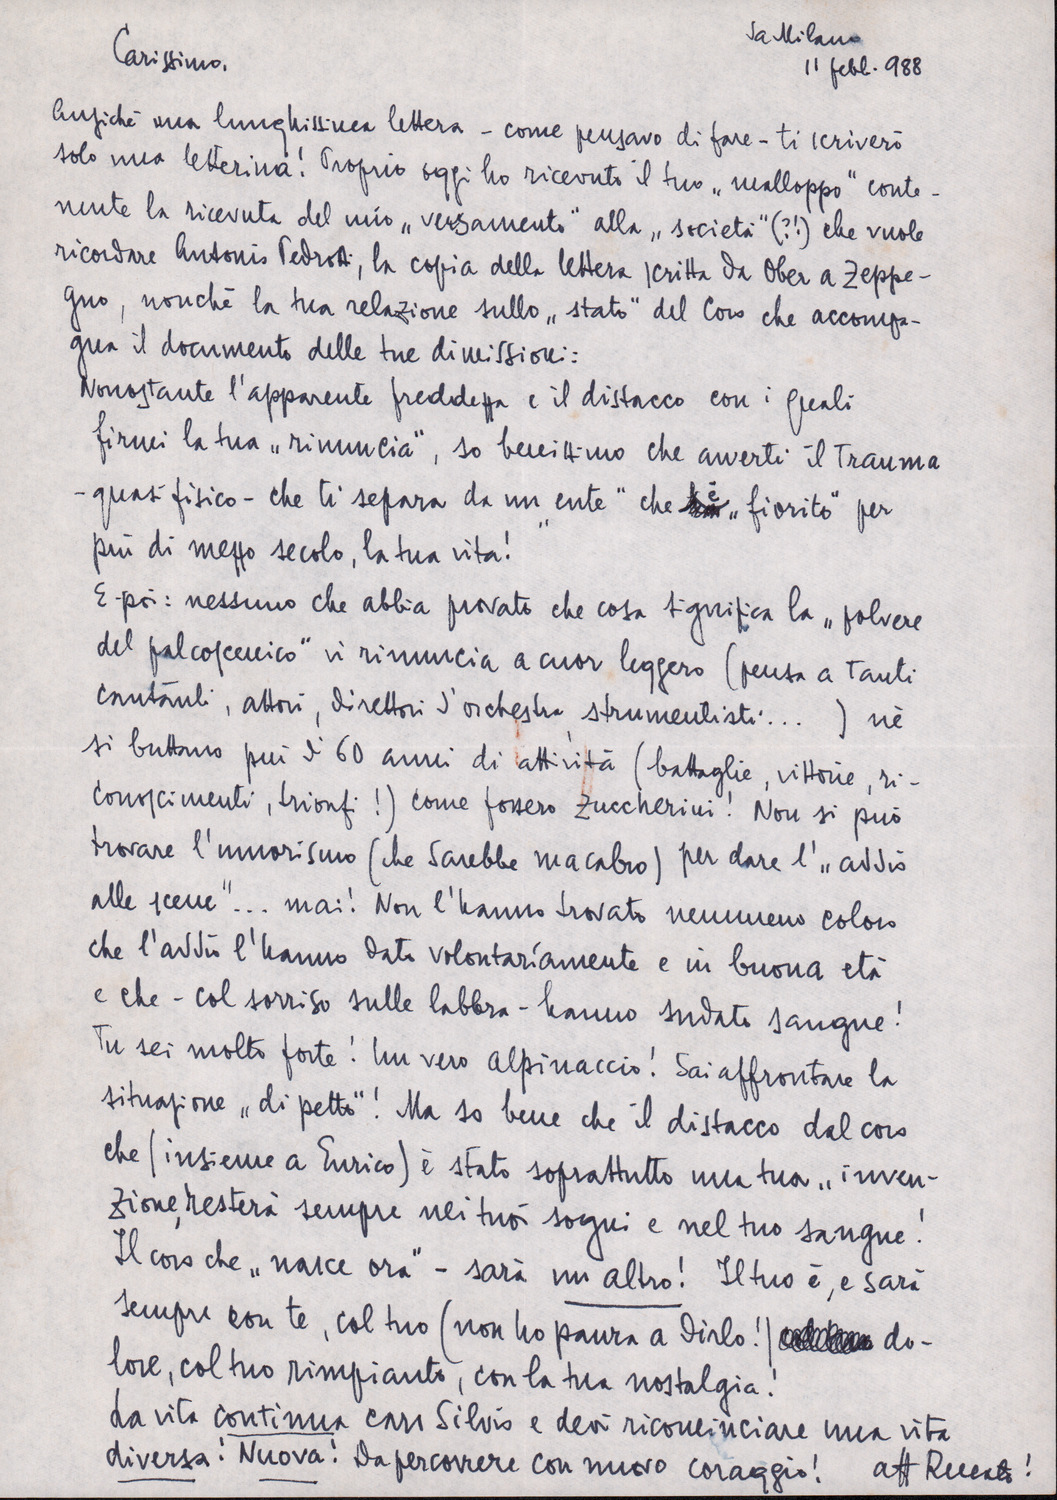 da Milano
11 febb. 988
Carissimo.
Anziché una lunghissima lettera - come pensavo di fare - ti scriverò
solo una letterina! Proprio oggi ho ricevuto il tuo „malloppo" conte-
nente la ricevuta del mio „versamento" alla „società" (?!) che vuole
ricordare Antonio Pedrotti, la copia della lettera scritta da Ober a Zeppe-
gno, nonché la tua relazione sullo „stato" del Coro che accompa-
gna il documento delle tue dimissioni:
Nonostante l'apparente freddezza e il distacco con i quali
firmi la tua „rinuncia", so benissimo che avverti il trauma
- quasi fisico - che ti separa da un „ente" che è „fiorito" per
più di mezzo secolo, la tua vita!
E poi: nessuno che abbia provato che cosa significa la „polvere
del palcoscenico" vi rinuncia a cuor leggero (pensa a tanti
cantanti, attori, direttori d'orchestra, strumentisti... ) nè
si buttano più di 60 anni di attività (battaglie, vittorie, ri-
conoscimenti, trionfi!) come fossero zuccherini! Non si può
trovare l'umorismo (che sarebbe macabro) per dare l'„addio
alle scene"... mai! Non l'hanno trovato nemmeno coloro
che l'addio l'hanno dato volontariamente e in buona età
e che - col sorriso sulle labbra - hanno sudato sangue!
Tu sei molto forte! Un vero alpinaccio! Sai affrontare la
situazione „di petto"! Ma so bene che il distacco dal coro
che (insieme a Enrico) è stato soprattutto una tua „inven-
zione", resterà sempre nei tuoi sogni e nel tuo sangue!
Il coro che „nasce ora" - sarà un altro! Il tuo è, e sarà
sempre con te, col tuo (non ho paura a dirlo!) do-
lore, col tuo rimpianto, con la tua nostalgia!
La vita continua caro Silvio e devi ricominciare una vita
diversa! Nuova! Da percorrere con nuovo coraggio! aff Renato!